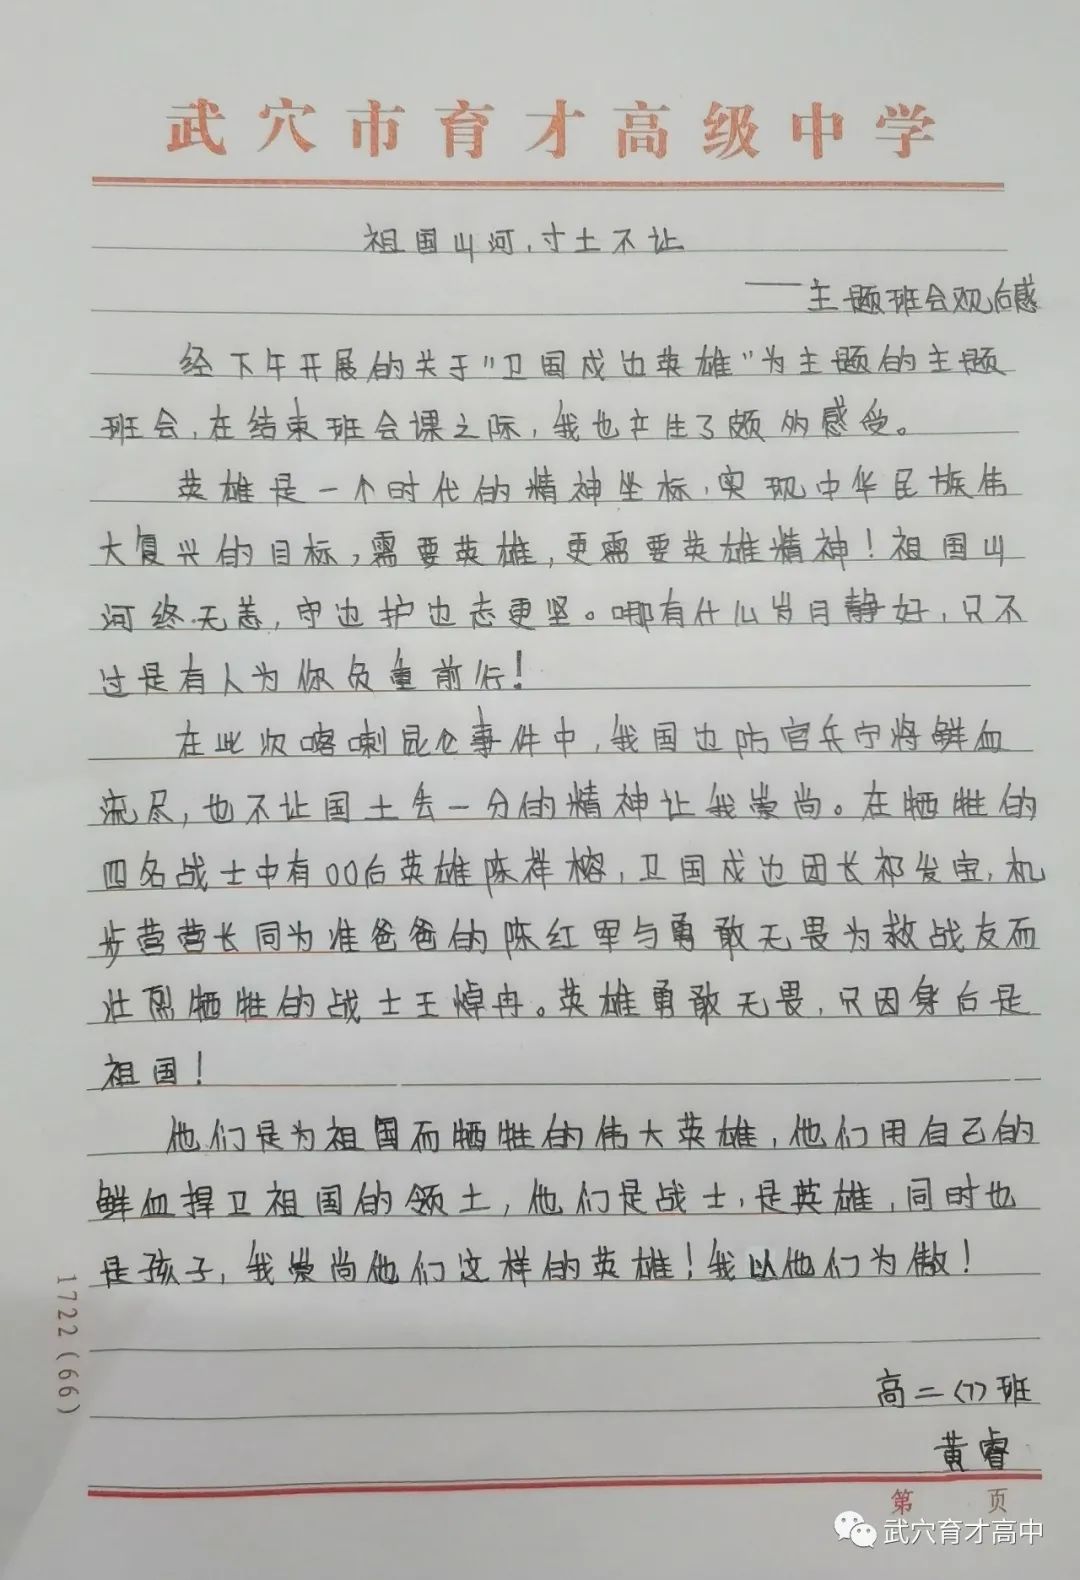 武穴市育才高级中学
祖国山河，寸土不让
——主题班会观后感
经下午开展的关于"卫国戍边英雄"为主题的主题
班会，在结束班会课之际，我也产生了颇为感受。
英雄是一个时代的精神坐标，实现中华民族伟
大复兴的目标，需要英雄，更需要英雄精神！祖国山
河终无恙，守边护边志更坚。哪有什么岁月静好，只不
过是有人为你负重前行！
在此次喀喇昆仑事件中，我国边防官兵宁将鲜血
流尽，也不让国土丢一分的精神让我崇尚。在牺牲的
四名战士中有00后英雄陈祥榕，卫国戍边团长祁发宝，机
步营营长同为准爸爸的陈红军与勇敢无畏为救战友而
壮烈牺牲的战士王焯冉。英雄勇敢无畏，只因身后是
祖国！
他们是为祖国而牺牲的伟大英雄，他们用自己的
鲜血捍卫祖国的领土，他们是战士，是英雄，同时也
是孩子，我崇尚他们这样的英雄！我以他们为傲！
高二(7)班
黄睿
第 页
1722(66)
武穴育才高中